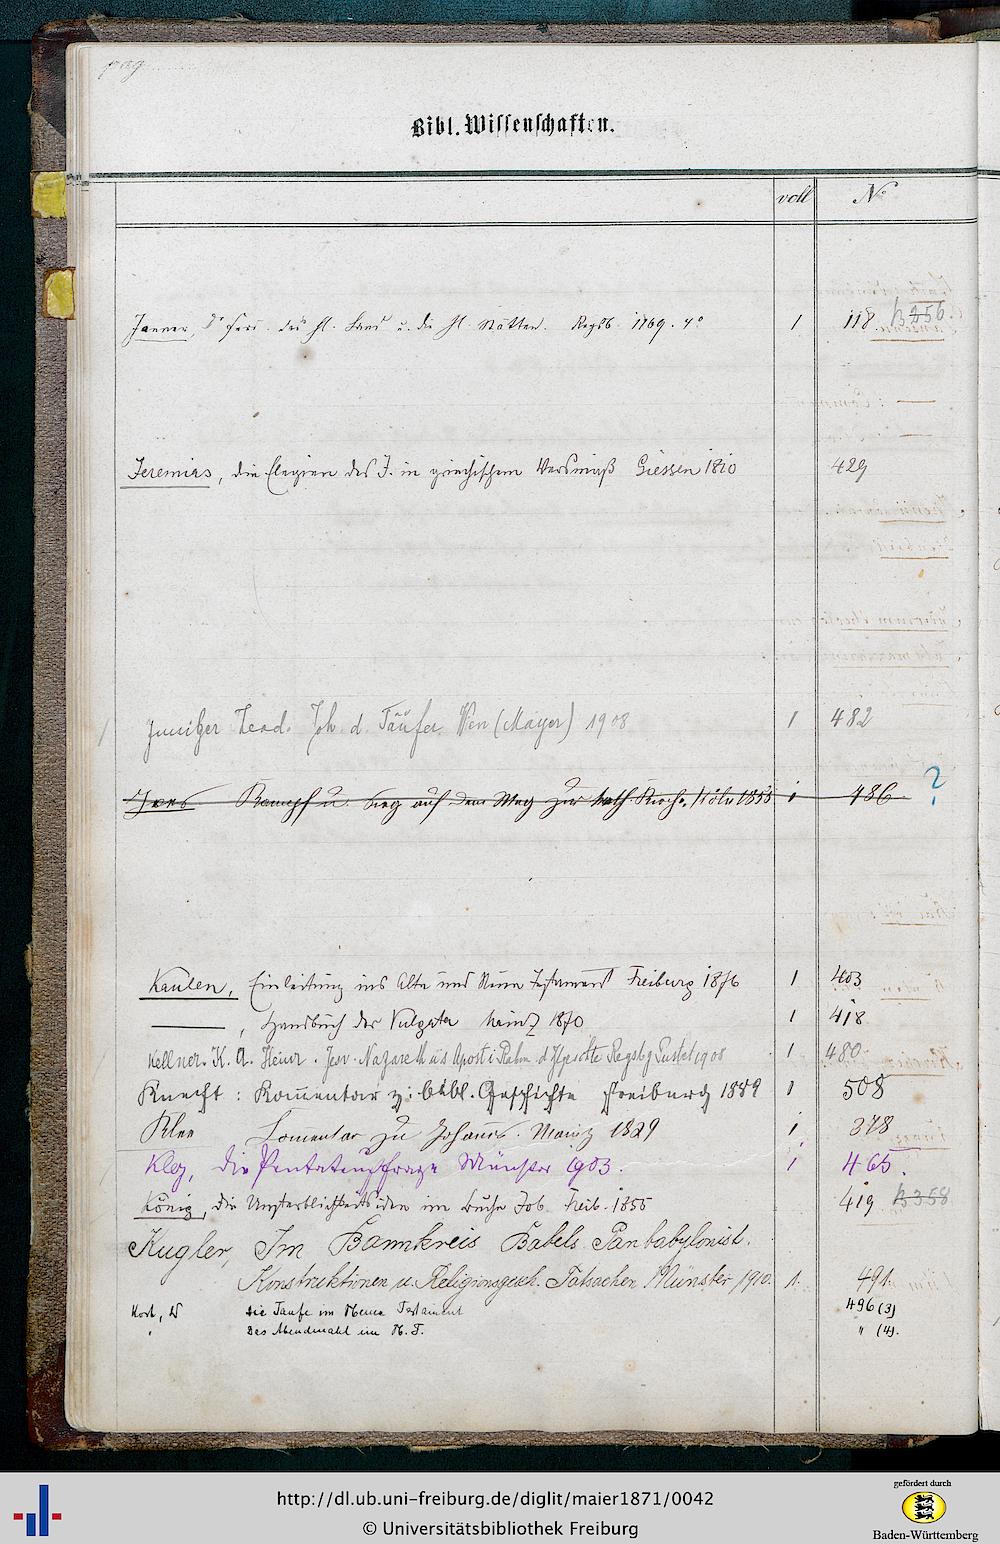 pag
Bibl. Wissenschaften.
voll N°
Janner, das hl. Land u. die hl. Stätten. Regsb. 1869. 4° 1 118.
Jeremias, die Elegien des J. in griechischem Versmaß Giessen 1810 429
Joh. d. Täufer. Wien (Mayer) 1908 1 482
Kampf u. Sieg auf dem Weg zur kath. Kirche, Köln 1 486 ?
Kaulen, Einleitung ins Alte und Neue Testament Freiburg 1876 1 403
——, Handbuch der Vulgata Mainz 1870 1 418
Kellner. K. A. Heinr. Jesu v. Nazareth u. s. Apostel Regsbg Pustet 1908 1 480
Knecht: Kommentar z. bibl. Geschichte Freiburg 1889 1 508
Klee Comentar zu Johannes. Mainz 1829 1 378
Kley, die Pentateuchfrage Münster 1903. 1 465.
König, die Unsterblichkeitsidee im Buche Job Freib. 1855 419 B 358
Kugler, Im Bannkreis Babels Panbabylonist.
Konstruktionen u. Religionsgesch. Tatsachen Münster 1910. 1. 491.
Koch, W Die Taufe im Neuen Testament 496 (3)
" Das Abendmahl im N. T. " (4).
http://dl.ub.uni-freiburg.de/diglit/maier1871/0042
© Universitätsbibliothek Freiburg
gefördert durch
Baden-Württemberg